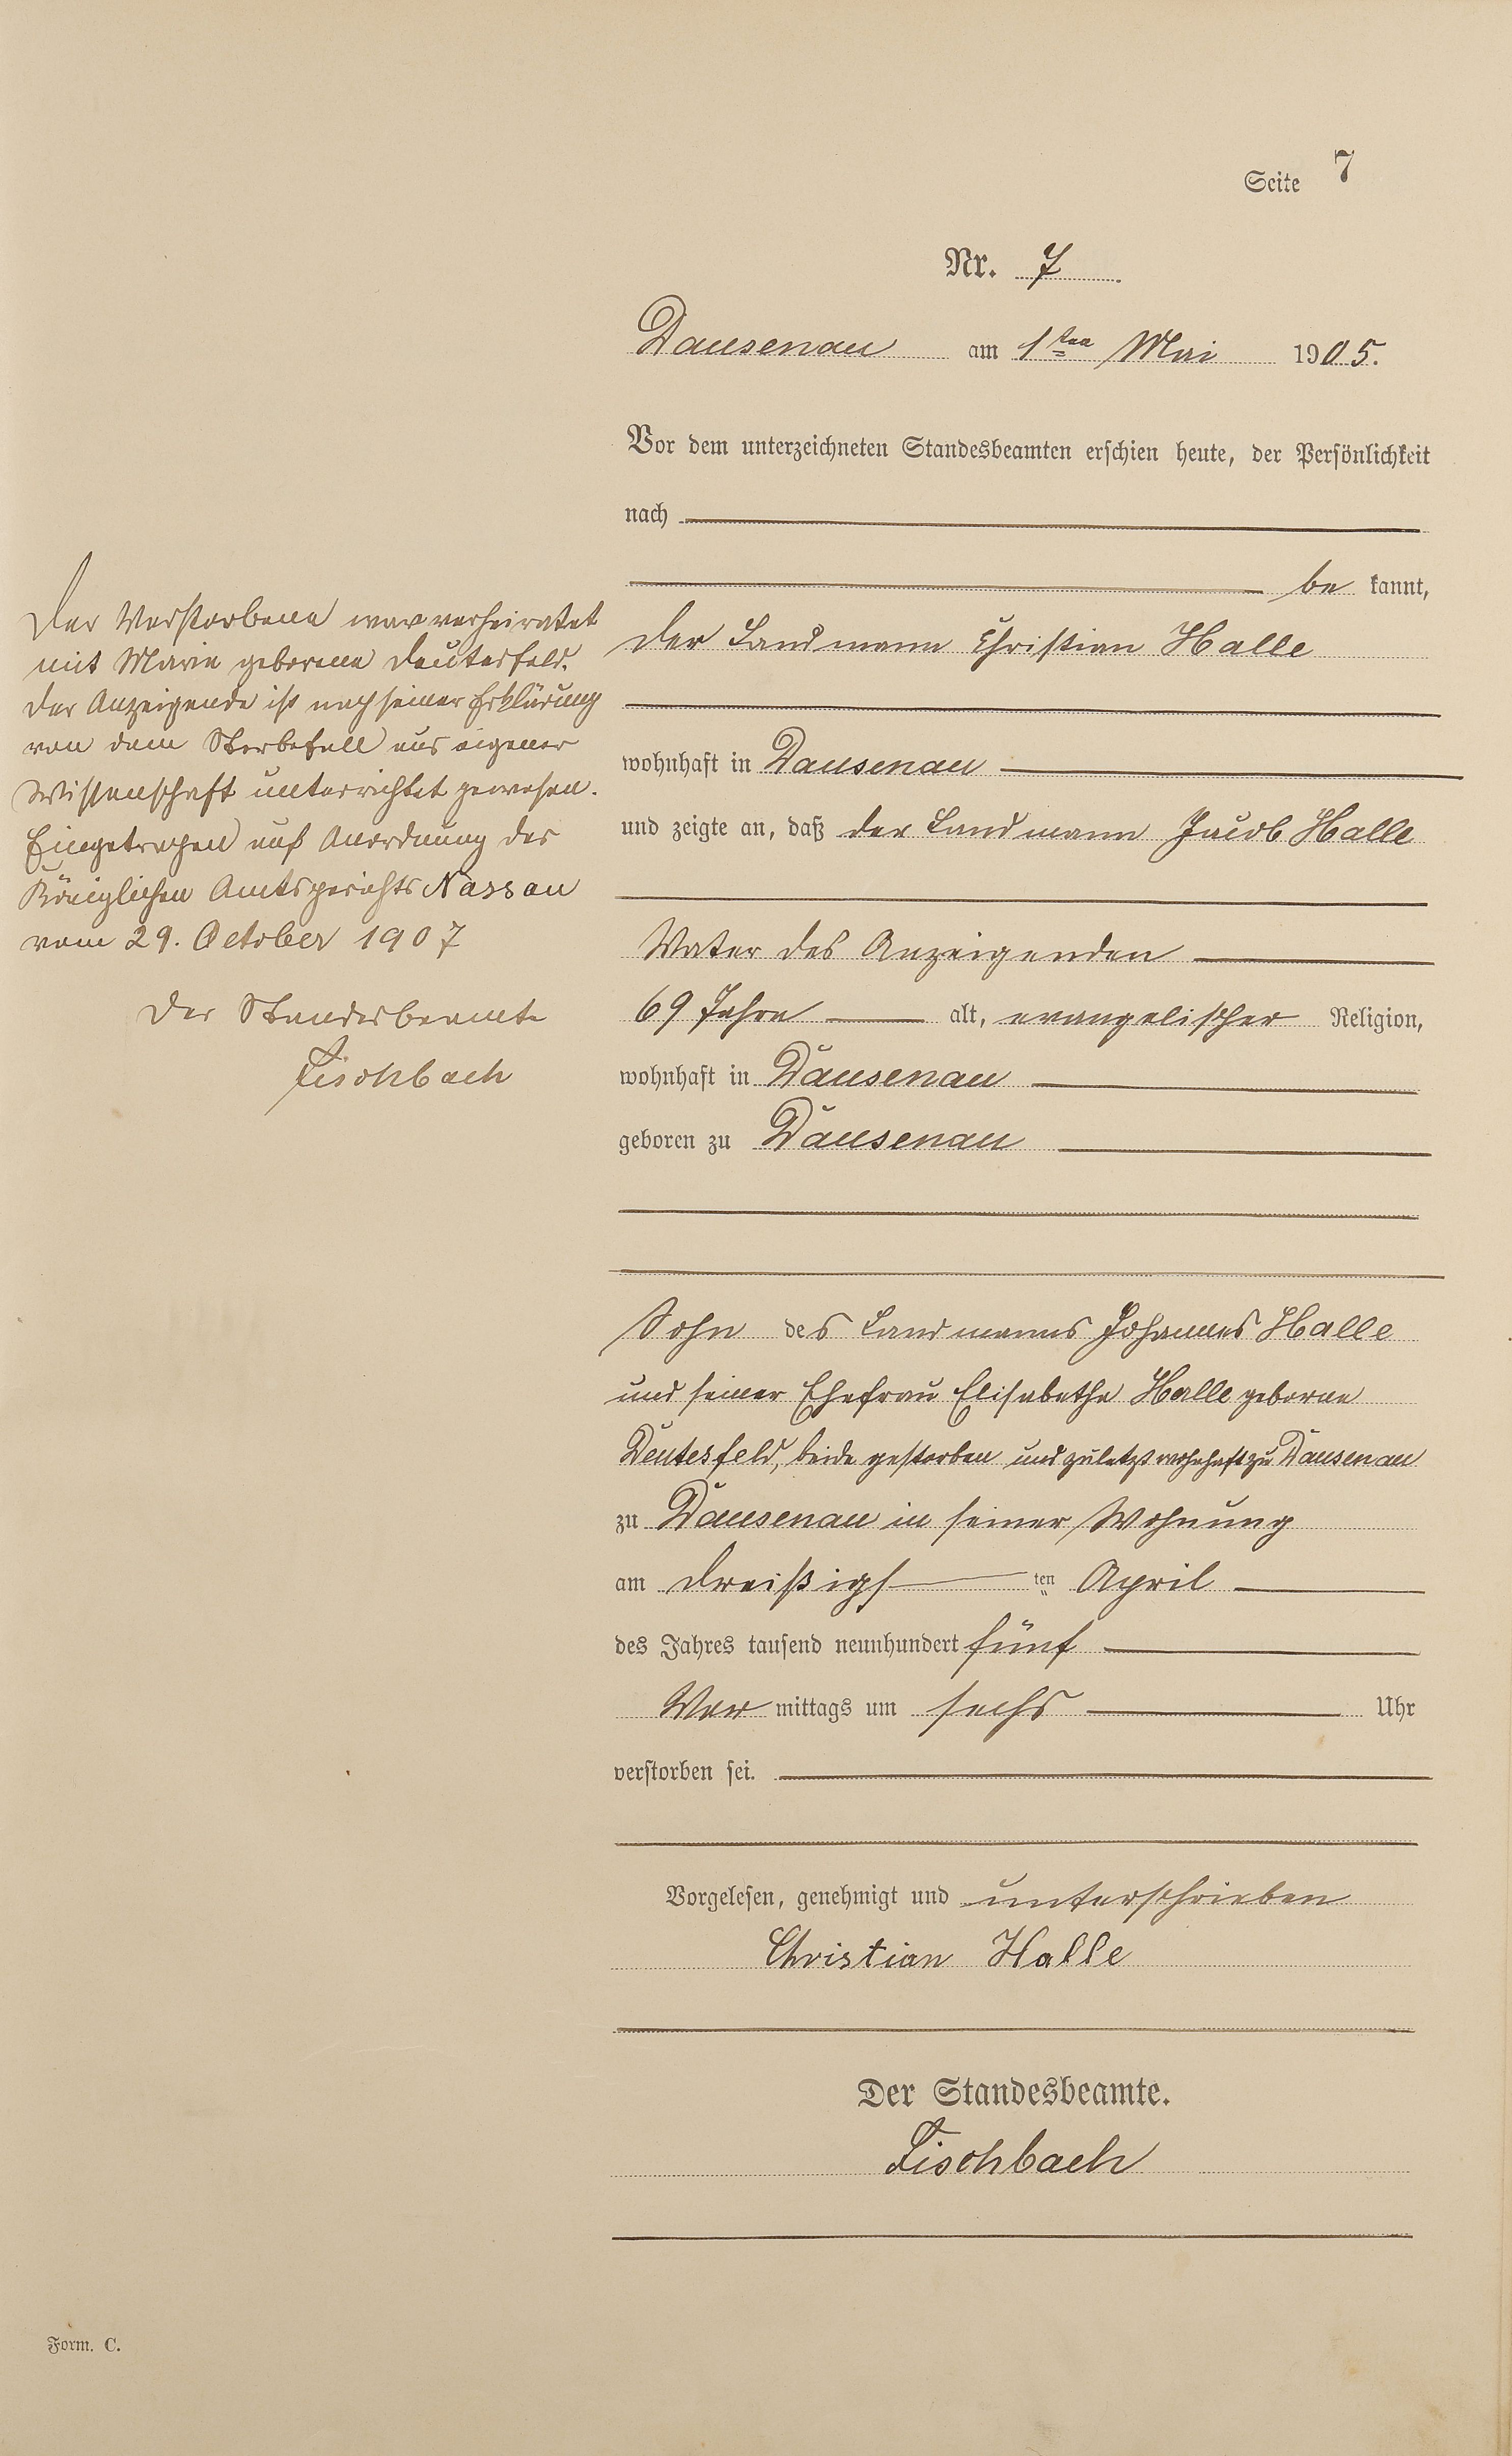 Seite 7
Nr. 7
Dausenau am 1ten Mai 1905.
Vor dem unterzeichneten Standesbeamten erschien heute, der Persönlichkeit
nach
be kannt,
der Landmann Christian Halle
wohnhaft in Dausenau
und zeigte an, daß der Landmann Jacob Halle
Vater des Anzeigenden
69 Jahre alt, evangelischer Religion,
wohnhaft in Dausenau
geboren zu Dausenau
Sohn des Landmanns Johannes Halle
und seiner Ehefrau Elisabethe Halle geborne
Deutesfeld, beide gestorben und zuletzt wohnhaft zu Dausenau
zu Dausenau in seiner Wohnung
am dreißigs ten April
des Jahres tausend neunhundert fünf
Vor mittags um sechs Uhr
verstorben sei.
Vorgelesen, genehmigt und unterschrieben
Christian Halle
Der Standesbeamte.
Fischbach
Der Verstorbene war verheiratet
mit Marie geborene Deutesfeld.
Der Anzeigende ist nach seiner Erklärung
von dem Sterbefall aus eigener
Wissenschaft unterrichtet gewesen.
Eingetragen auf Anordnung des
Königlichen Amtsgerichts Nassau
vom 29. October 1907
Der Standesbeamte
Fischbach
Form. C.